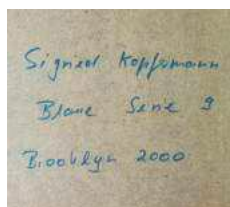 Signed Kopfermann
Blaue Serie 9
Brooklyn 2000